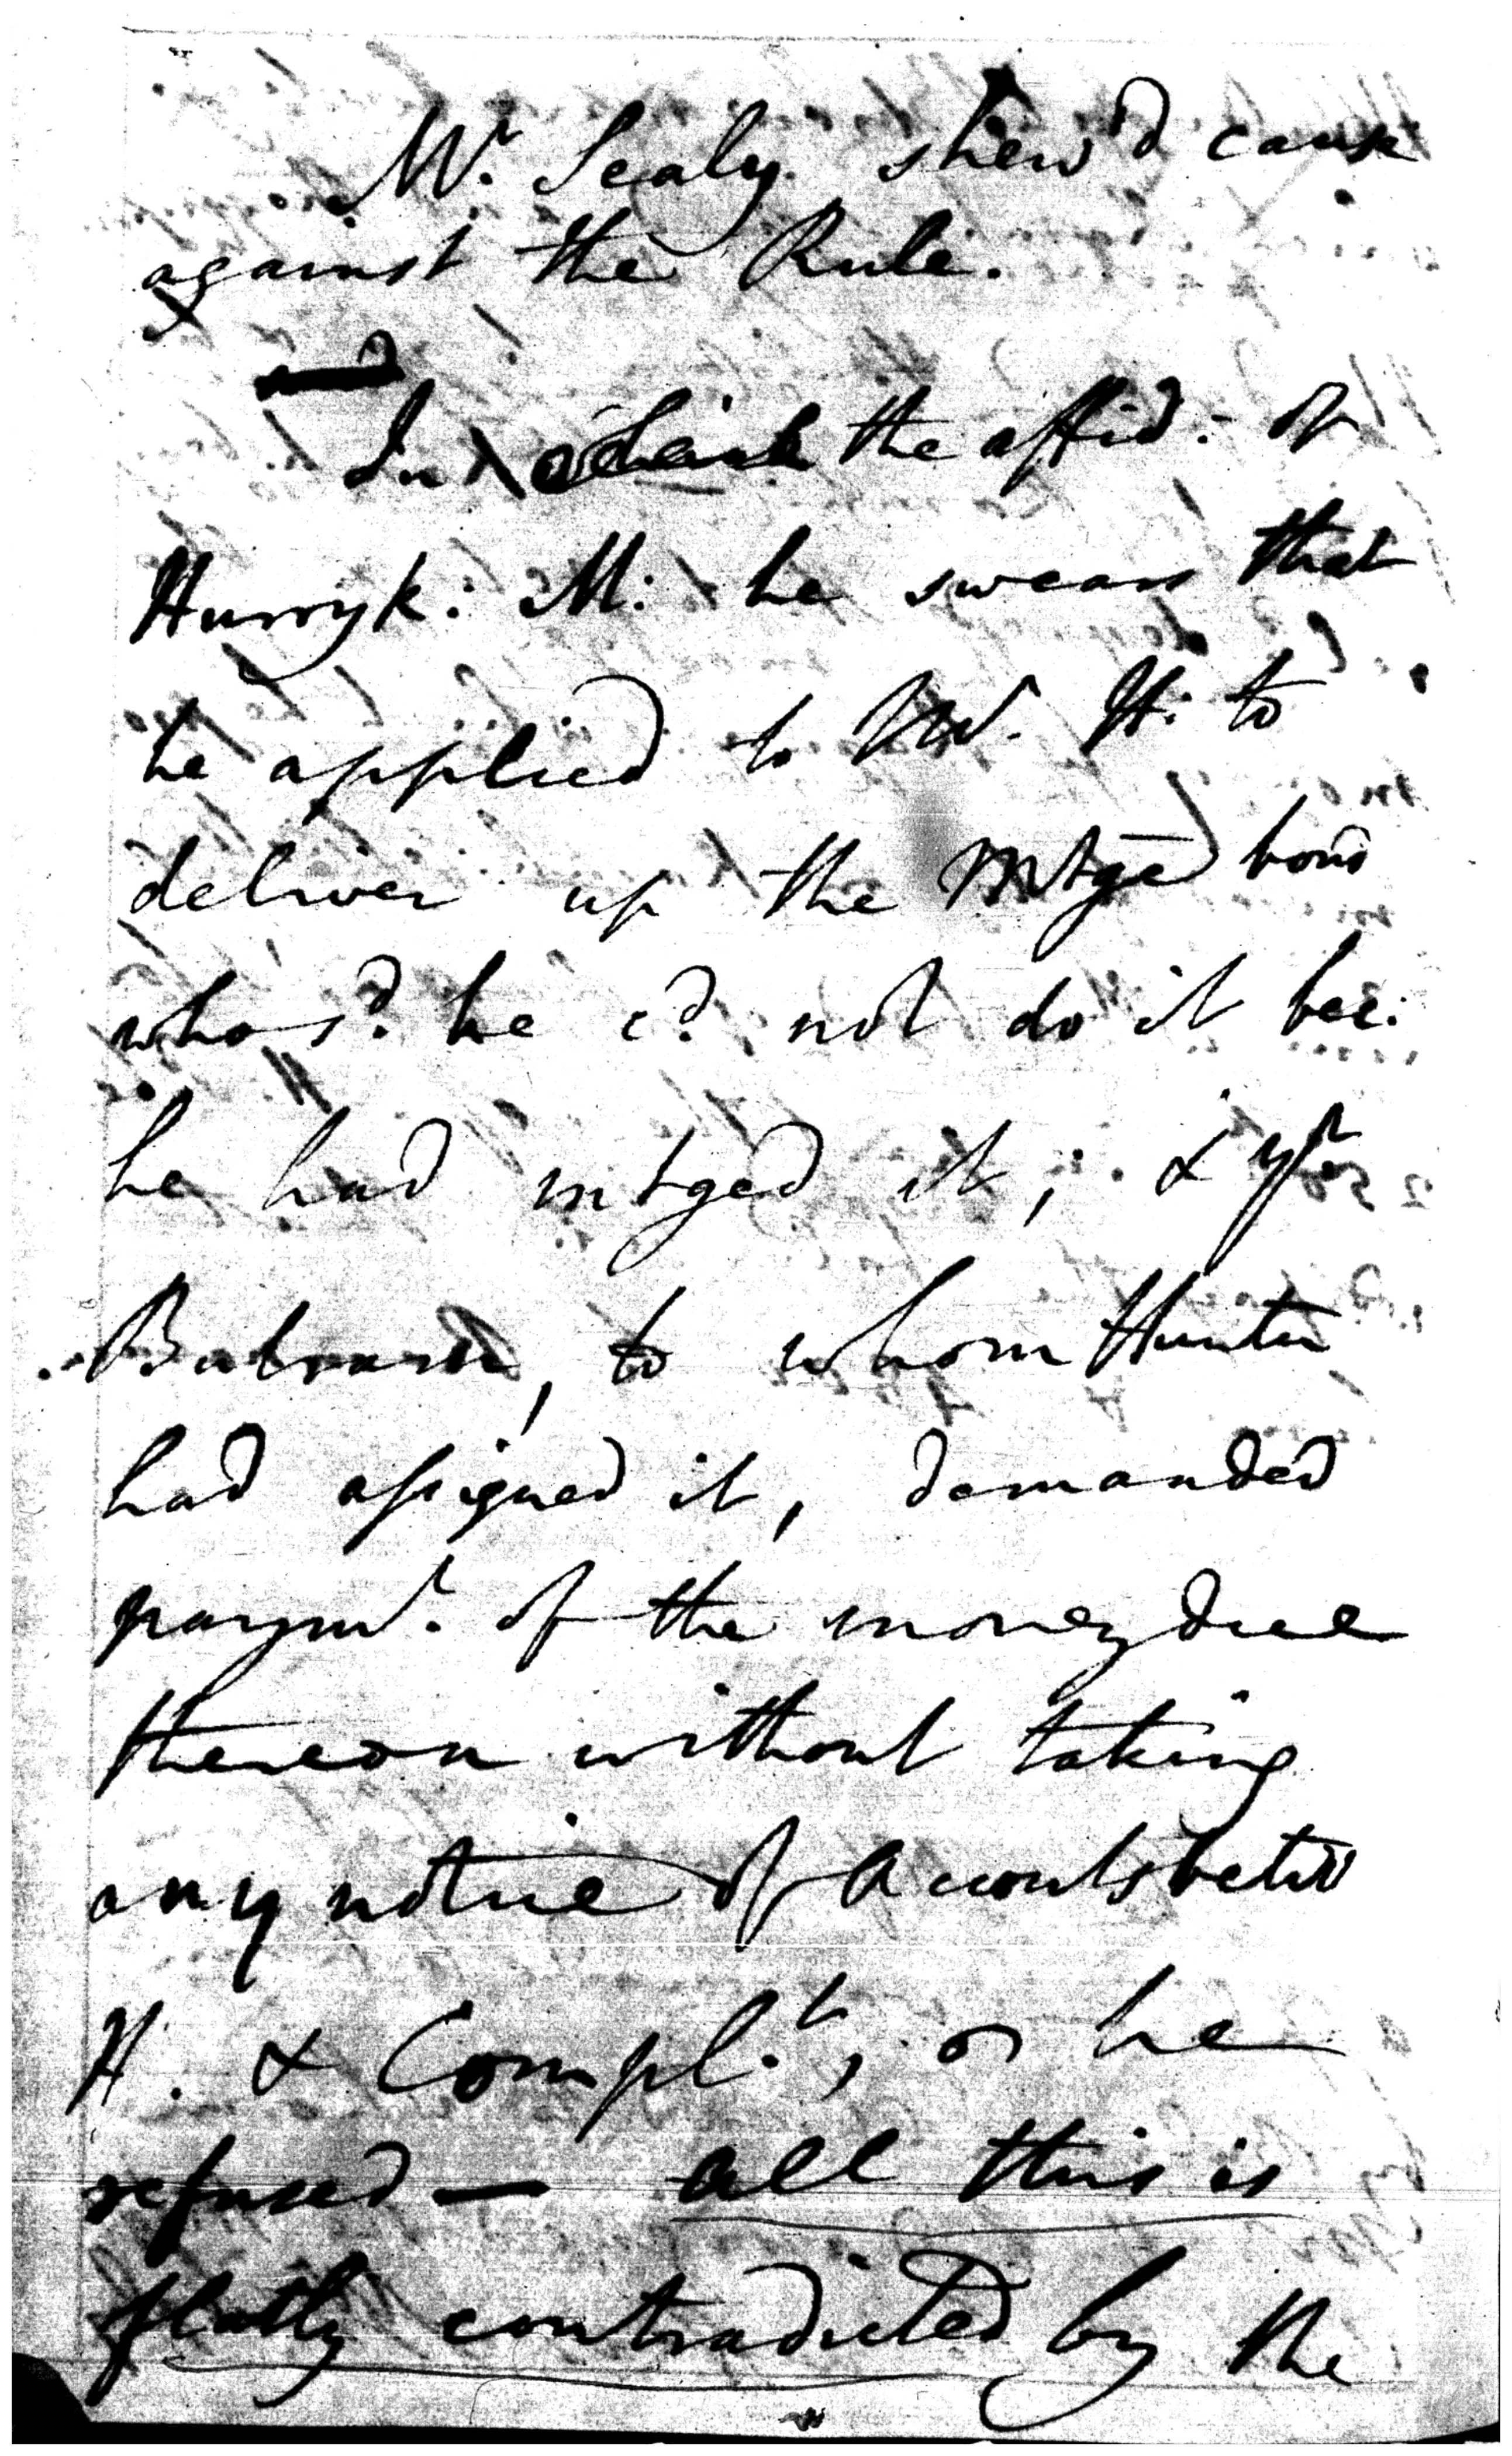 Mr. Sealy shew'd cause
against the Rule.
In the affid: of
Hurryk: M: he swears that
he applied to Mr. H: to
deliver up the Mtge bond
who sd. he cd. not do it bec:
he had mtged it; & yt
to whom Hunter
had assigned it, demanded
paymt. of the money due
thereon without taking
any notice of Accounts betw
H. & Complt., or he
refused — all this is
flatly contradicted by the